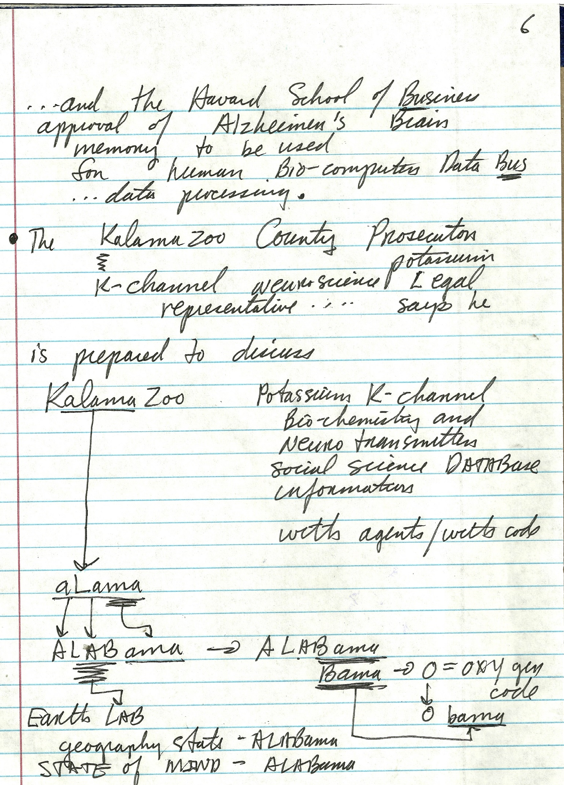 6
...and the Havard School of Business
approval of Alzheimer's Brain
memory to be used
for human Bio-computers Data Bus
... data processing.
• The Kalamazoo County Prosecutor
potassium
K-channel neuroscience Legal
representative .... says he
is prepared to discuss
Kalamazoo Potassium K-channel
Bio-chemistry and
Neuro transmitters
social science DATABase
information
with agents/with code
aLama
ALABama → ALABama
Bama → O = OXYgen
code
Earth LAB O bama
geography state - ALABama
STATE of MIND - ALABama